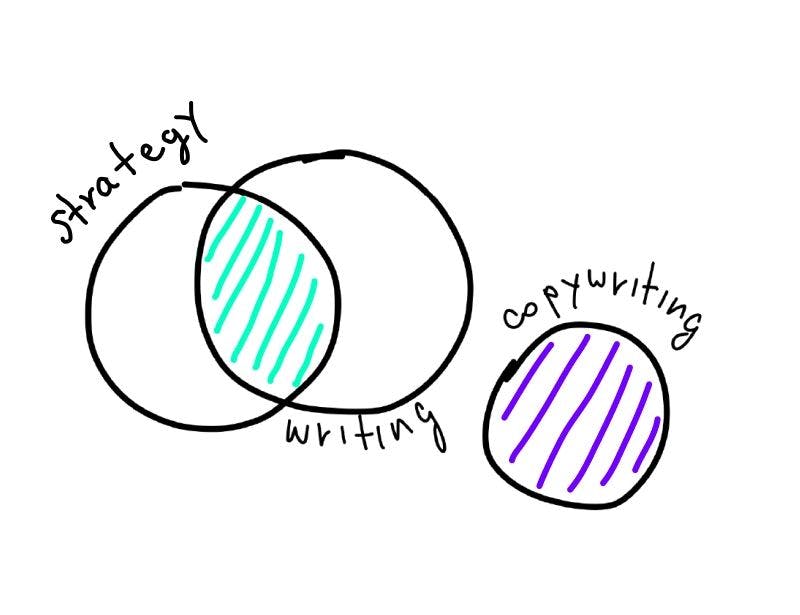 strategy
writing
copywriting